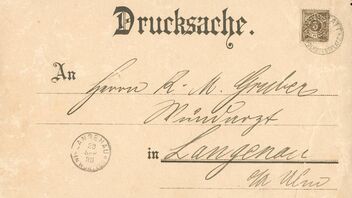 Drucksache.
3
An
Herrn R. M. Gruber
Wundarzt
in Langenau
b/ Ulm
LANGENAU